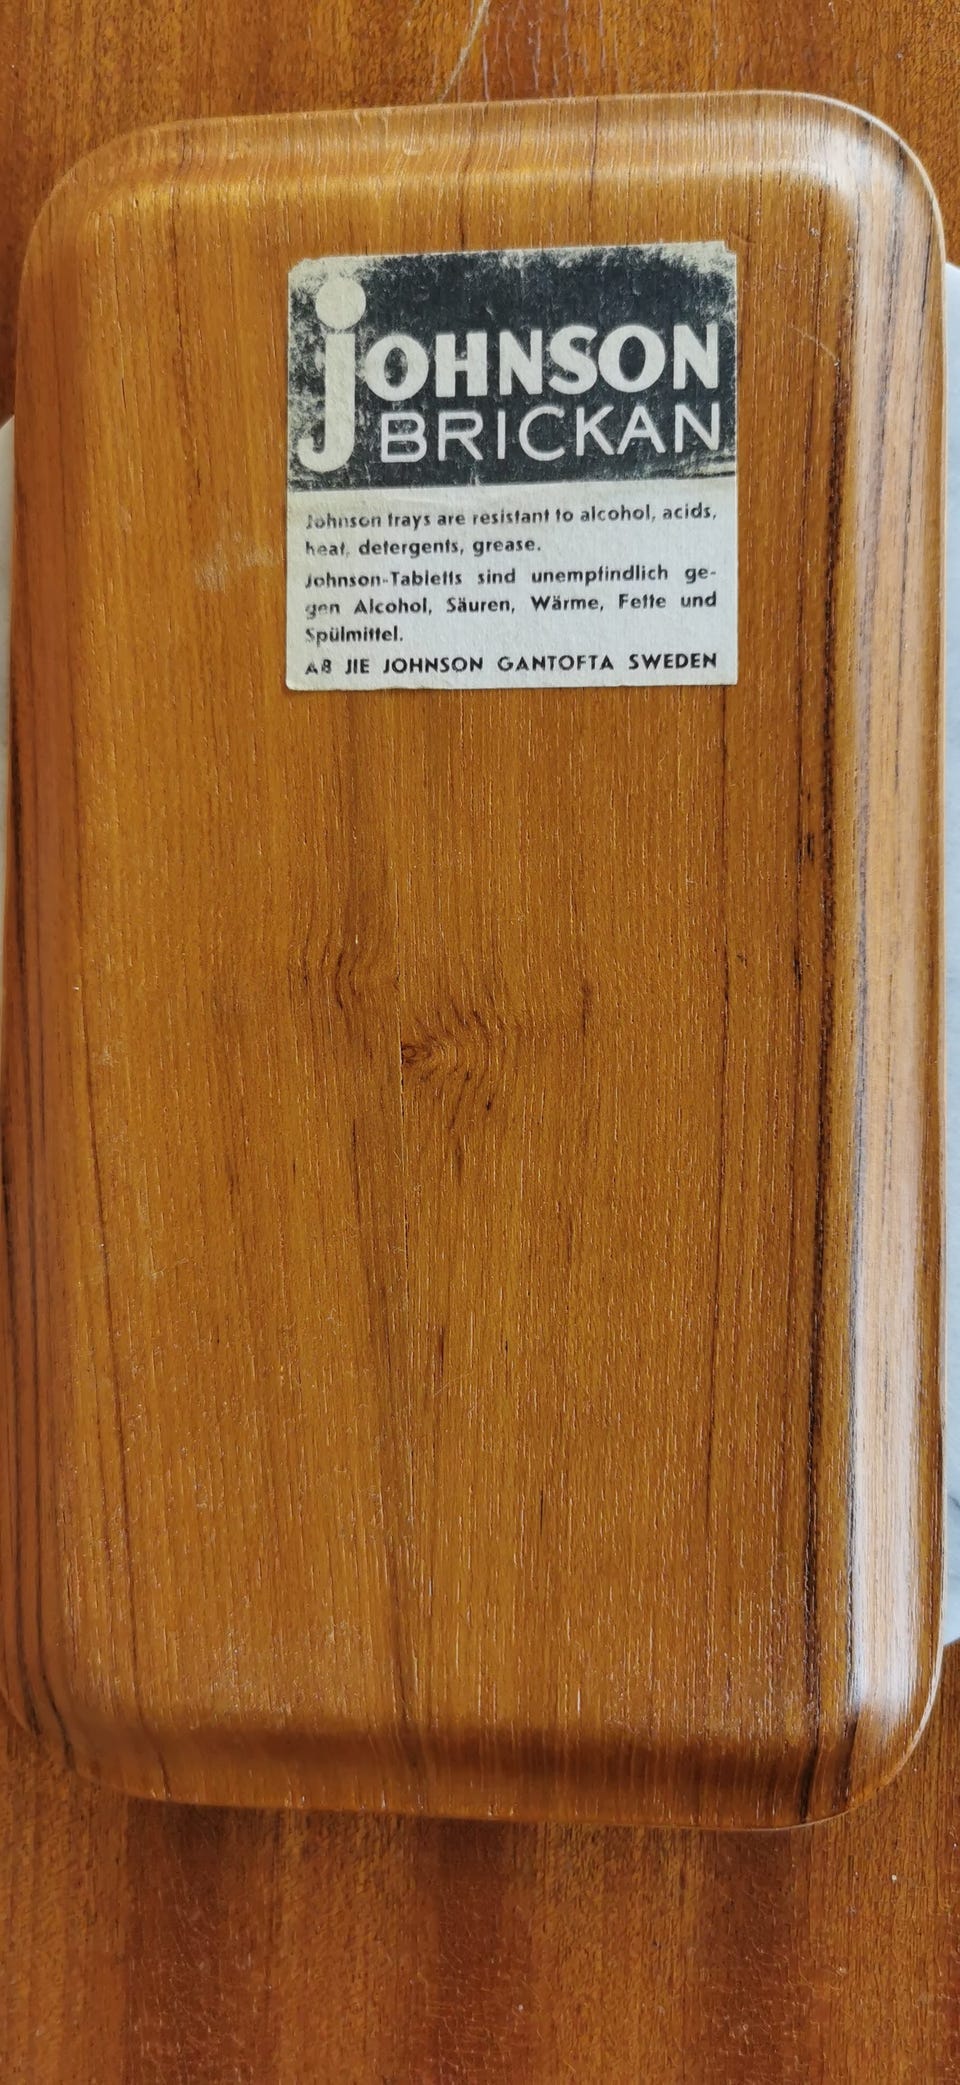 JOHNSON
BRICKAN
Johnson trays are resistant to alcohol, acids,
heat, detergents, grease.
Johnson-Tabletts sind unempfindlich ge-
gen Alcohol, Säuren, Wärme, Fette und
Spülmittel.
AB JIE JOHNSON GANTOFTA SWEDEN